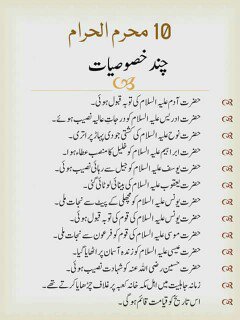 10 محرم الحرام
چند خصوصیات
حضرت آدم علیہ السلام کی توبہ قبول ہوئی۔
حضرت ادریس علیہ السلام کو درجات عالیہ نصیب ہوئے۔
حضرت نوح علیہ السلام کی کشتی جودی پہاڑ پر اتری۔
حضرت ابراہیم علیہ السلام کو خلیل کا منصب عطاء ہوا۔
حضرت یوسف علیہ السلام کو جیل سے رہائی نصیب ہوئی۔
حضرت یعقوب علیہ السلام کی بینائی لوٹائی گئی۔
حضرت یونس علیہ السلام کو مچھلی کے پیٹ سے نجات ملی۔
حضرت یونس علیہ السلام کی قوم کی توبہ قبول ہوئی۔
حضرت موسی علیہ السلام کی قوم کو فرعون سے نجات ملی۔
حضرت عیسی علیہ السلام کو زندہ آسمان پر اٹھایا گیا۔
حضرت حسین رضی اللہ عنہ کو شہادت نصیب ہوئی۔
زمانہ جاہلیت میں اہل مکہ خانہ کعبہ پر غلاف چڑھایا کرتے تھے۔
اس تاریخ کو قیامت قائم ہوگی۔